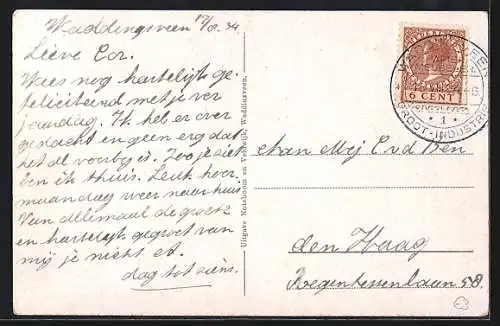 Waddingsveen 17/8. 34
Lieve Cor.
Wees nog hartelijk ge-
feliciteerd met je ver
jaardag. Ik heb er over
gedacht en geen erg dat
het al voorbij is. Zoo je ziet
ben ik thuis. Leuk hoor.
maandag weer naar huis
Van allemaal de groete
en hartelijk gegroet van
mij je nicht
dag tot ziens.
Uitgave Noteboom en Verkwijk, Waddinxveen.
6 CENT
GROOT-INDUSTRIE
* 1 *
Aan Mej C v d Ben
den Haag
Regentessenlaan 58.